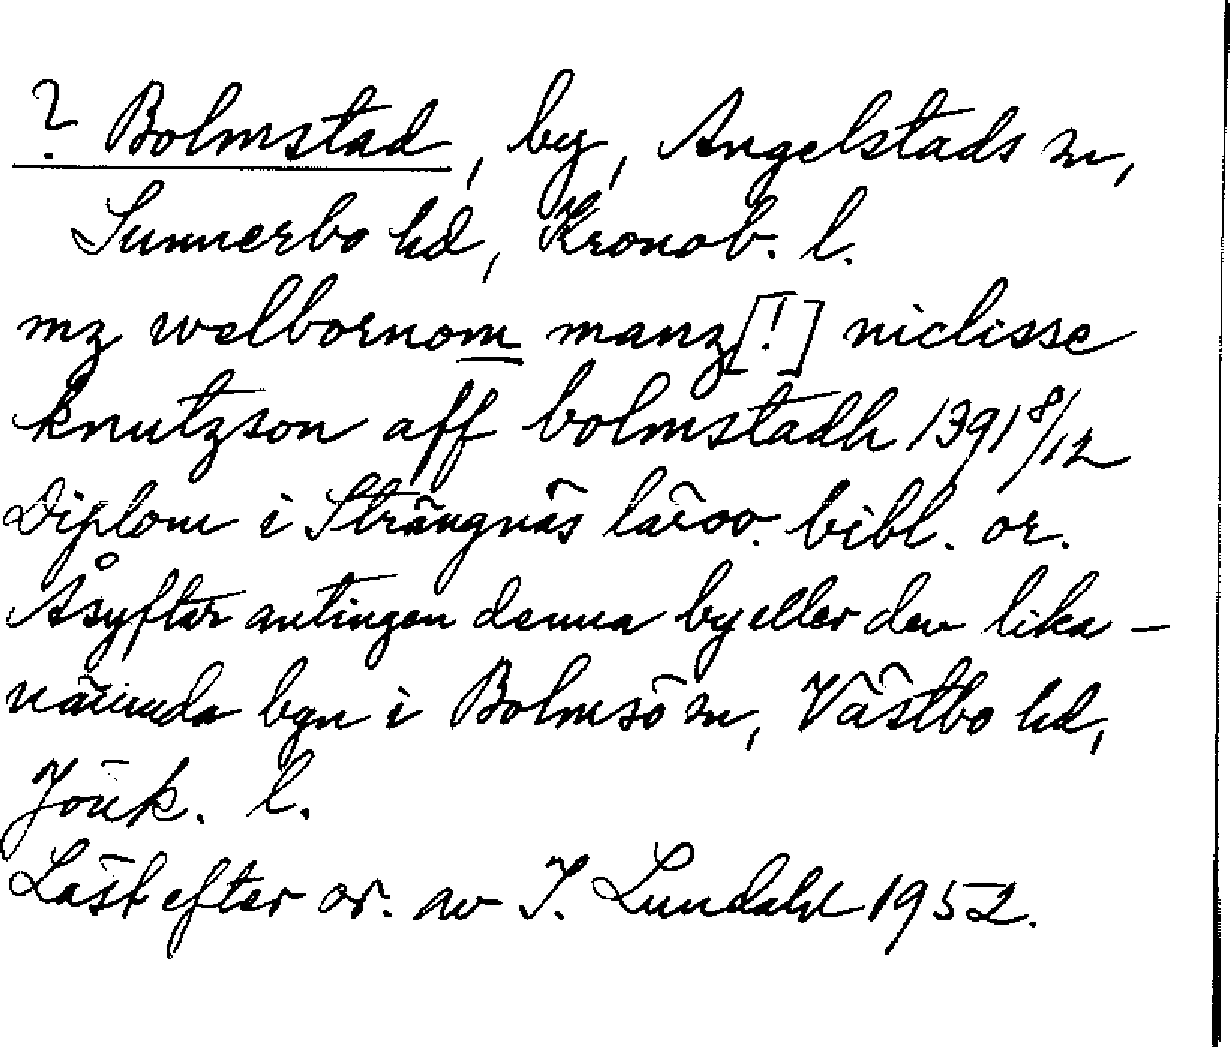 ? Bolmstad, by, Angelstads sn,
Sunnerbo hd, Kronob. l.
mz welbornom manz [!] niclisse
knutzson aff bolmstadh 1391 8/12
Diplom i Strängnäs lärov. bibl. or.
Åsyftar antingen denna by eller den lika-
nämnda byn i Bolmsö sn, Västbo hd,
Jönk. l.
Läst efter or. av I. Lundahl 1952.